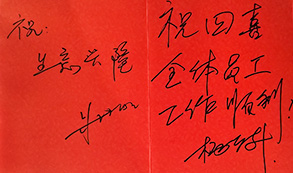 祝:
生意兴隆
祝四喜
全体员工
工作顺利!